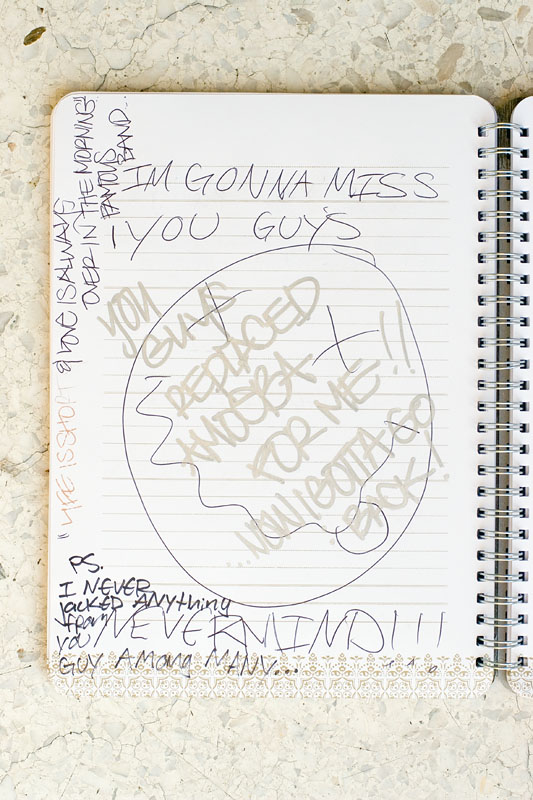 IM GONNA MISS
YOU GUYS
YOU
GUYS
REPLACED
AMOEBA
FOR ME!!
...NOW I GOTTA GO
BACK!
"LIFE IS SHORT
& LOVE IS ALWAYS
OVER IN THE MORNING"
FAMOUS
BAND.
PS.
I NEVER
JACKED ANYthing
from
YOU
NEVERMIND!!!
GUY AMONG MANY...